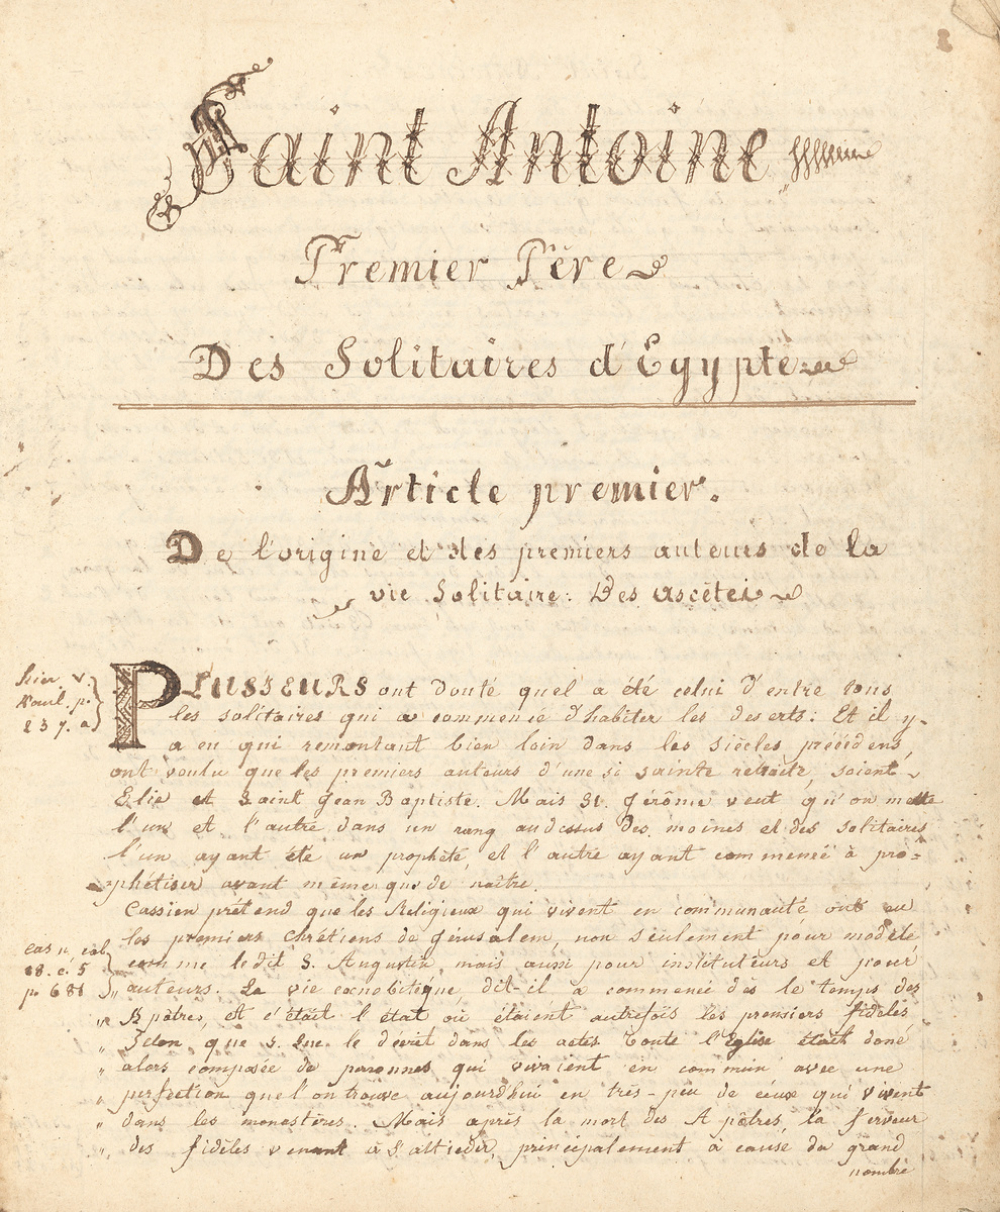 Saint Antoine
Premier Père
Des Solitaires d'Egypte
Article premier.
De l'origine et des premiers auteurs de la
vie Solitaire. Des ascètes
Hier. v.
Paul. p.
237. a
Plusieurs ont douté quel a été celui d'entre tous
les solitaires qui a commencé d'habiter les deserts: Et il y
a eu qui remontant bien loin dans les siècles précédens,
ont voulu que les premiers auteurs d'une si sainte retraite, soient
Elie et Saint Jean Baptiste. Mais St. Jérôme veut qu'on mette
l'un et l'autre dans un rang audessus des moines et des solitaires
l'un ayant été un prophête, et l'autre ayant commencé à pro-
phétiser avant même que de naître.
Cassien prétend que les Religieux qui vivent en communauté ont eu
les premiers Chrétiens de Jérusalem, non seulement pour modèle
cas n, col
18. c. 5
p. 681
comme le dit S. Augustin, mais aussi pour instituteurs et pour
„ auteurs. La vie cœnobitique, dit-il a commencé des le temps des
„ Apôtres, et c'était l'état où étaient autrefois les premiers fidèles,
„ Selon que S. Luc le décrit dans les actes. Toute l'Eglise était donc
„ alors composée de personnes qui vivaient en commun avec une
„ perfection que l'on trouve aujourdhui en très-peu de ceux qui vivent
„ dans les monastères. Mais après la mort des Apôtres, la ferveur
„ des fidèles venant à S'attiedir, principalement à cause du grand
nombre